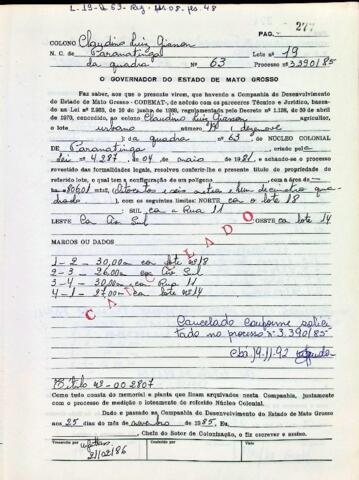 L-19-D 63- Reg. fls. 08. fls. 48
277
PAG.
COLONO Claudino Luiz Gianon Lote nº 19
N. C. de Paranatinga
da quadra Nº 63 Processo nº 3390/85
O GOVERNADOR DO ESTADO DE MATO GROSSO
Faz saber, aos que o presente virem, que havendo a Companhia de Desenvolvimento
do Estado de Mato Grosso - CODEMAT, de acôrdo com os pareceres Técnico e Jurídico, basea-
do na Lei nº de 10 de junho de regulamentado pelo Decreto nº 1.138, de 30 de abril
de 1970, concedido, ao colono Claudino Luiz Gianon agricultor,
o lote urbano número 19 dezenove
da quadra nº 63, do NÚCLEO COLONIAL
DE Paranatinga, criado pela
lei nº 4287, de 04 de maio de 1981, e achando-se o processo
revestido das formalidades legais, resolves conferir-lhe o presente título de propriedade do
referido lote, o qual tem a configuração de um polígono, com a área de
806,01 mts², (oitocentos e seis metros e um decímetro qua
drado), com os seguintes limites: NORTE com o lote 18
; SUL com a Rua 11
LESTE Com Sul OESTE lote 14
MARCOS OU DADOS
1 - 2 - 30,00m com lote nº 18
2 - 3 - 26,00m Sul
3 - 4 - 30,00m com Rua 11
4 - 1 - 27,00m com lote nº 14
CANCELADO
Cancelado conforme solici
tado no processo nº 3.390/85
Cbá, 19.11.92
Título nº 002807
Como tudo consta do memorial e planta que ficam arquivados nesta Companhia, juntamente
com o processo de medição e loteamento do referido Núcleo Colonial.
Dado e passado na Companhia de Desenvolvimento do Estado de Mato Grosso
aos 25 dias do mês de novembro de 1985, Eu,
, Chefe do Setor de Colonização, o fiz escrever e assino.
Transcrito por Conferido por Visto
21/02/86